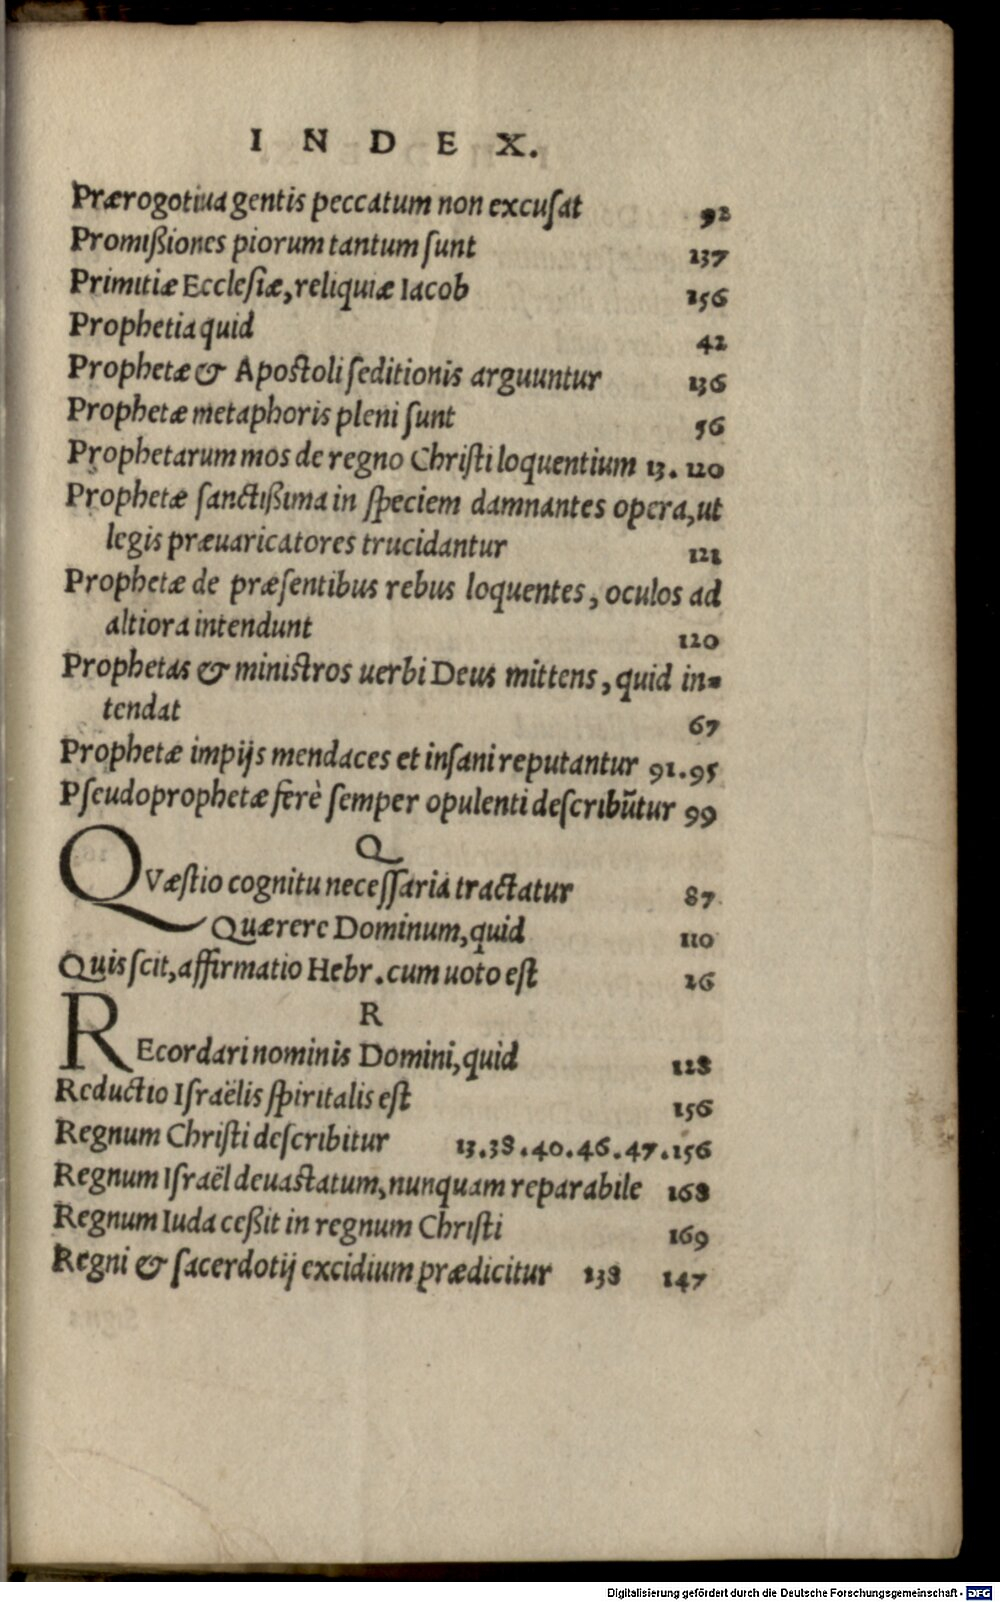 INDEX.
Prærogotiua gentis peccatum non excusat 92
Promißiones piorum tantum sunt 137
Primitiæ Ecclesiæ, reliquiæ Iacob 156
Prophetia quid 42
Prophetæ & Apostoli seditionis arguuntur 136
Prophetæ metaphoris pleni sunt 56
Prophetarum mos de regno Christi loquentium 13. 120
Prophetæ sanctißima in speciem damnantes opera, ut
legis præuaricatores trucidantur 121
Prophetæ de præsentibus rebus loquentes, oculos ad
altiora intendunt 120
Prophetas & ministros uerbi Deus mittens, quid in-
tendat 67
Prophetæ impijs mendaces et insani reputantur 91.95
Pseudoprophetæ ferè semper opulenti describūtur 99
Q
QVæstio cognitu necessaria tractatur 87
Quærere Dominum, quid 110
Quis scit, affirmatio Hebr. cum uoto est 26
R
REcordari nominis Domini, quid 128
Reductio Israëlis spiritalis est 156
Regnum Christi describitur 13.38.40.46.47.156
Regnum Israël deuastatum, nunquam reparabile 168
Regnum Iuda ceßit in regnum Christi 169
Regni & sacerdotij excidium prædicitur 138 147
Digitalisierung gefördert durch die Deutsche Forschungsgemeinschaft - DFG